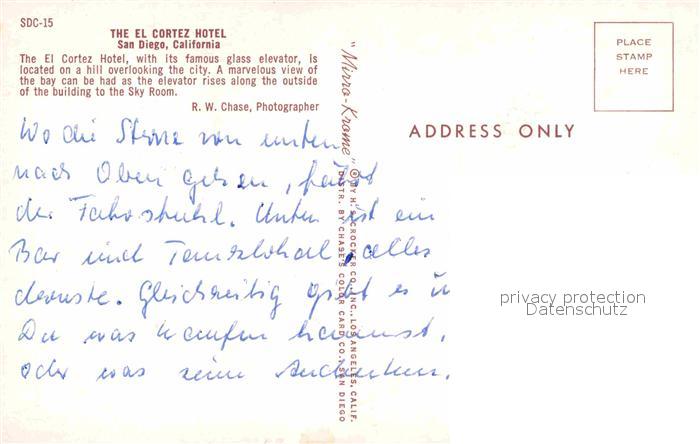 SDC-15
THE EL CORTEZ HOTEL
San Diego, California
The El Cortez Hotel, with its famous glass elevator, is
located on a hill overlooking the city. A marvelous view of
the bay can be had as the elevator rises along the outside
of the building to the Sky Room.
R. W. Chase, Photographer
Wo die Sterne von unten
nach Oben gehen, fährt
der Fahrstuhl. Unten ist ein
Bar und Tanzlokal, alles
Gleichzeitig gibt es
Du was kaufen kannst,
oder was zum Andenken.
"Mirro-Krome" ® BY H. S. CROCKER CO., INC., LOS ANGELES, CALIF.
DISTR. BY CHASE'S COLOR CARD CO., SAN DIEGO
PLACE
STAMP
HERE
ADDRESS ONLY
privacy protection
Datenschutz